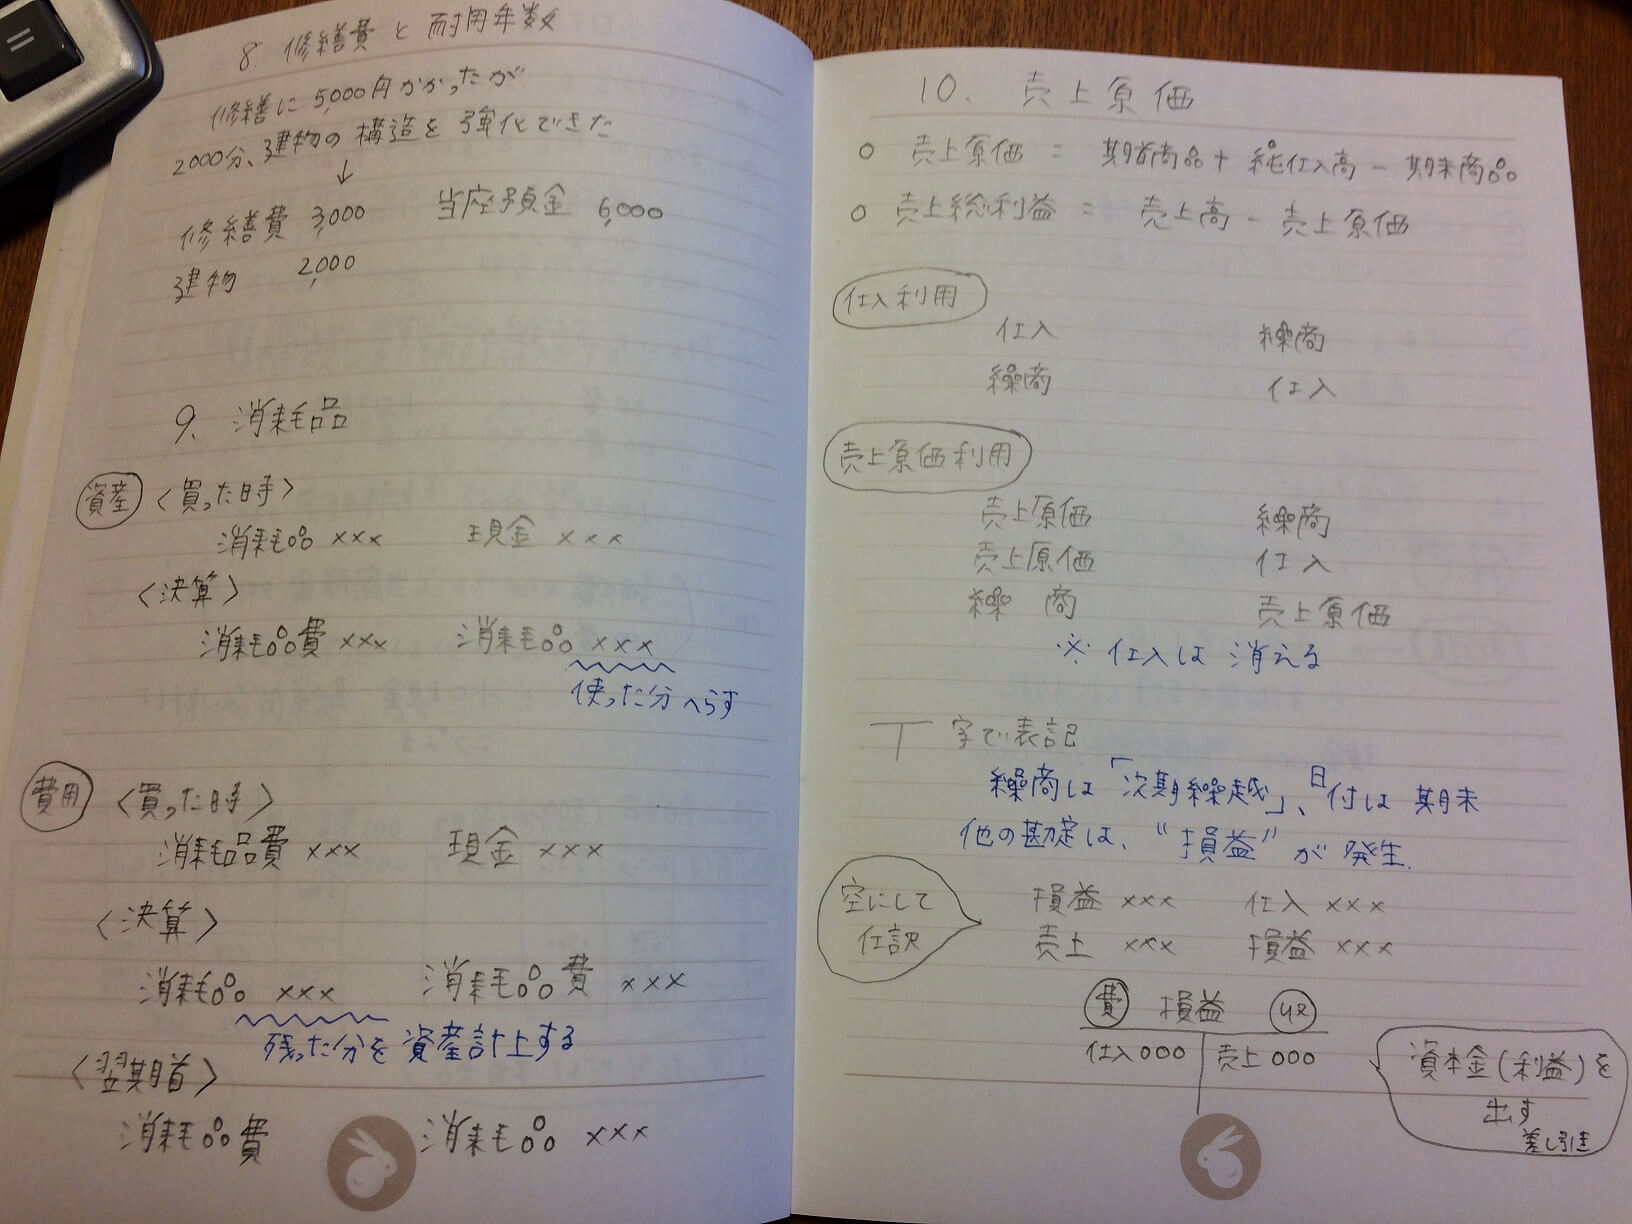 8. 修繕費と耐用年数
修繕に5,000円かかったが
2000分、建物の構造を強化できた
↓
修繕費 3,000 当座預金 6,000
建物 2,000
9. 消耗品
資産 〈買った時〉
消耗品 ××× 現金 ×××
〈決算〉
消耗品費 ××× 消耗品 ×××
使った分へらす
費用 〈買った時〉
消耗品費 ××× 現金 ×××
〈決算〉
消耗品 ××× 消耗品費 ×××
残った分を資産計上する
〈翌期首〉
消耗品費 消耗品 ×××
10. 売上原価
○ 売上原価 = 期首商品 + 純仕入高 − 期末商品
○ 売上総利益 = 売上高 − 売上原価
仕入利用
仕入 繰商
繰商 仕入
売上原価利用
売上原価 繰商
売上原価 仕入
繰商 売上原価
※ 仕入は消える
T字で表記
繰商は「次期繰越」、日付は期末
他の勘定は、“損益”が発生.
空にして
仕訳
損益 ××× 仕入 ×××
売上 ××× 損益 ×××
費 損益 収
仕入 000 売上 000
資本金(利益)を
出す
差し引き